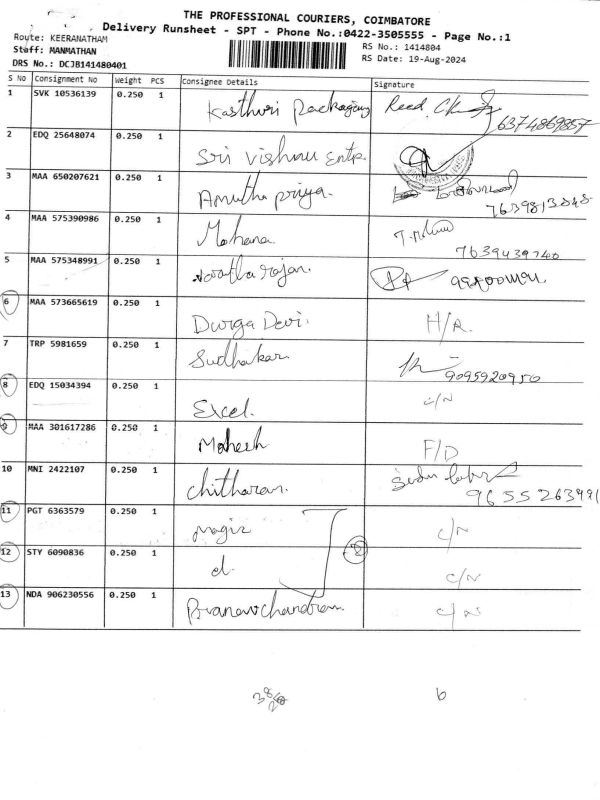 THE PROFESSIONAL COURIERS, COIMBATORE
Delivery Runsheet - SPT - Phone No.:0422-3505555 - Page No.:1
Route: KEERANATHAM
Staff: MANMATHAN
DRS No.: DCJB141480401
RS No.: 1414804
RS Date: 19-Aug-2024
S No Consignment No Weight PCS Consignee Details Signature
1 SVK 10536139 0.250 1 Kasthuri Packaging Recd. 6374869857
2 EDQ 25648074 0.250 1 Sri Vishnu Entp.
3 MAA 650207621 0.250 1 Amutha priya.
4 MAA 575390986 0.250 1 Mohana 7639439740
5 MAA 575348991 0.250 1
6 MAA 573665619 0.250 1 Durga Devi. H/A.
7 TRP 5981659 0.250 1 Sudhakar 9095920950
8 EDQ 15034394 0.250 1 Excel. C/N
9 MAA 301617286 0.250 1 Mahesh F/D
10 MNI 2422107 0.250 1 Chitharan. 9655263991
11 PGT 6363579 0.250 1 C/N
12 STY 6090836 0.250 1 d. C/N
13 NDA 906230556 0.250 1 Pranavchandran. C/N
6